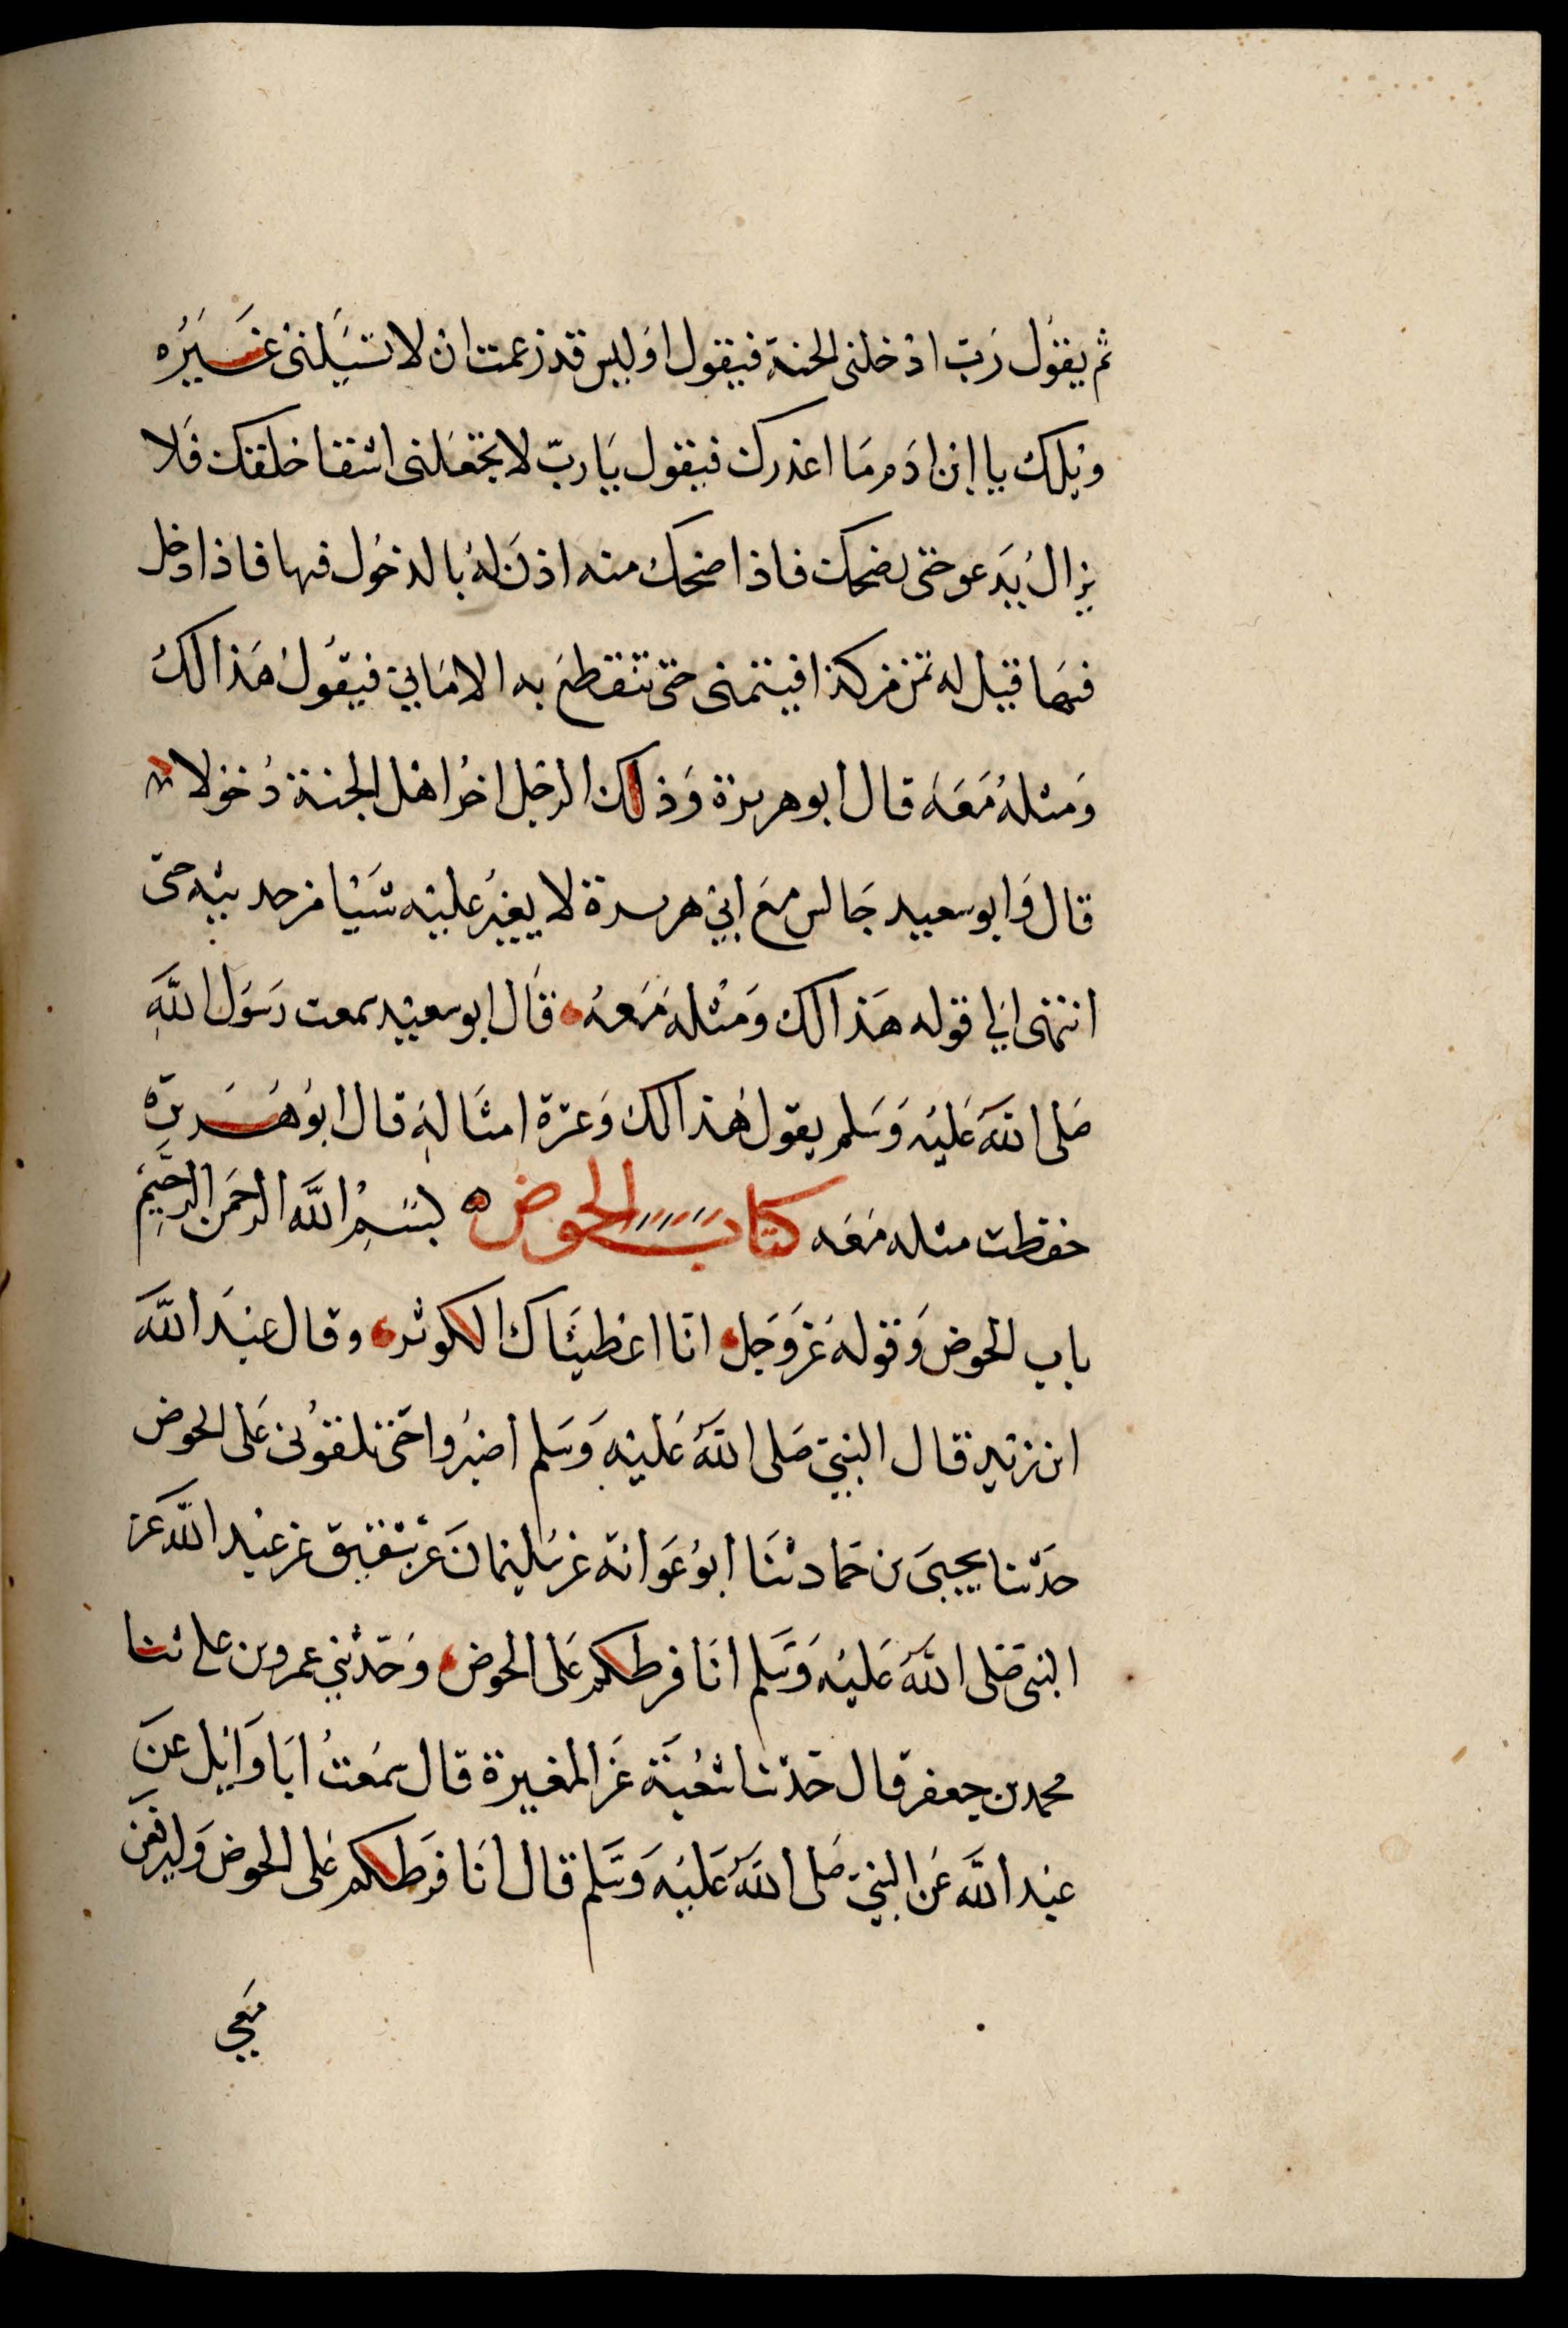 ثم يقول رب ادخلنى الجنة فيقول اوليس قد زعمت ان لا تسيلنى غيره
ويلك يا ابن ادم ما اغدرك فيقول يا رب لا تجعلنى اشقا خلقك فلا
يزال يدعو حتى يضحك فاذا ضحك منه اذن له بالدخول فيها فاذا دخل
فيها قيل له تمن من كذا فيتمنى حتى تنقطع به الامانى فيقول هذا لك
ومثله معه قال ابو هريرة وذلك الرجل اخر اهل الجنة دخولا
قال وابو سعيد جالس مع ابي هريرة لا يغير عليه شيا من حديثه حتى
انتهى الى قوله هذا لك ومثله معه قال ابو سعيد سمعت رسول الله
صلى الله عليه وسلم يقول هذا لك وعشرة امثاله قال ابو هريرة
حفظت مثله معه كتاب الحوض بسم الله الرحمن الرحيم
باب الحوض وقوله عز وجل انا اعطيناك الكوثر وقال عبد الله
ابن زيد قال النبي صلى الله عليه وسلم اصبروا حتى تلقونى على الحوض
حدثنا يحيى بن حماد ثنا ابو عوانة عن سليمان عن شقيق عن عبد الله عن
النبى صلى الله عليه وسلم انا فرطكم على الحوض وحدثني عمرو بن على ثنا
محمد بن جعفر قال حدثنا شعبة عن المغيرة قال سمعت ابا وايل عن
عبد الله عن النبي صلى الله عليه وسلم قال انا فرطكم على الحوض وليرفعن
معي